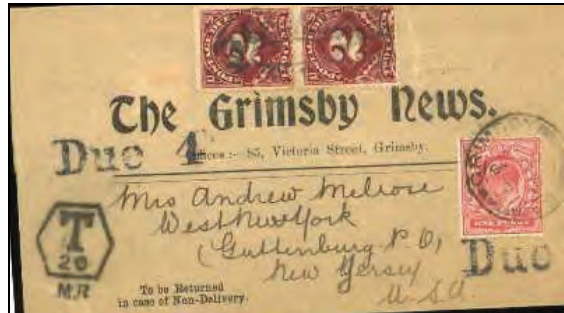 2 2
The Grimsby News.
Due 4
Offices:- 85, Victoria Street, Grimsby.
Mrs Andrew Melrose
West New York
(Guttenburg P.O,
New Jersey
U.S.A.
Due
T
20
M.R
To be Returned
in case of Non-Delivery.